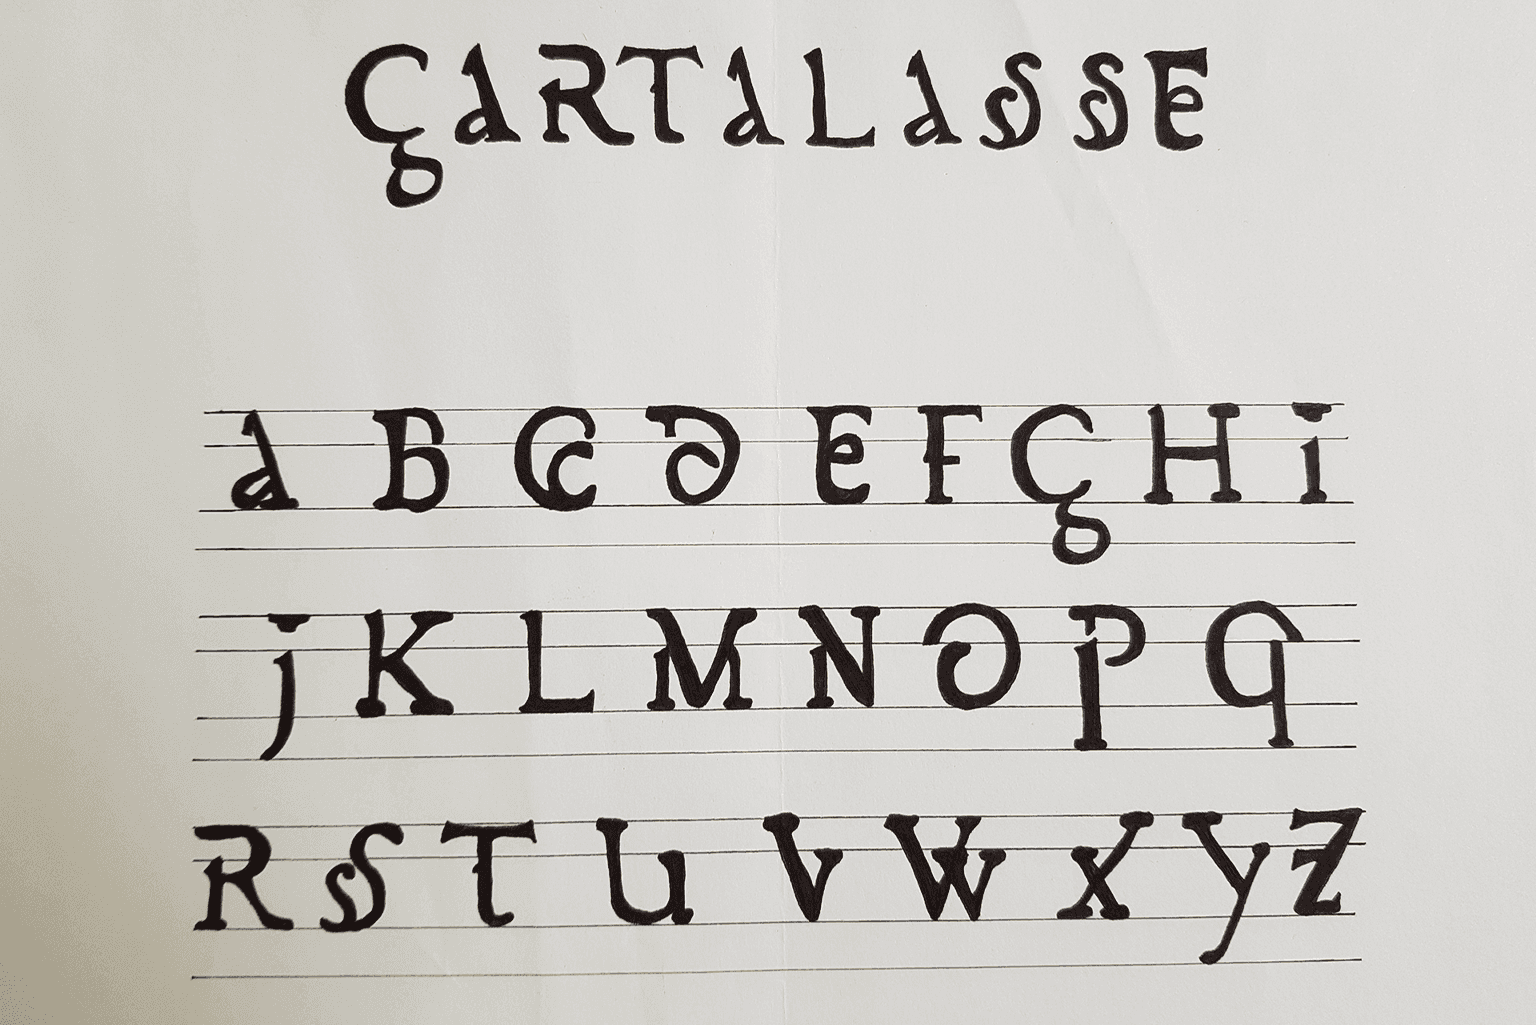 GARTALASSE
A B C D E F G H I
J K L M N O P Q
R S T U V W X Y Z